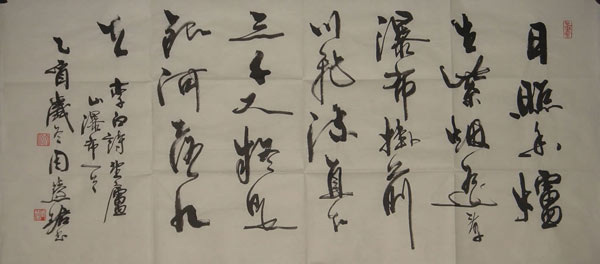 日照香爐
生紫烟遥看
瀑布掛前
川飛流直下
三千尺疑是
銀河落九
天
李白詩望廬
山瀑布一首
乙酉歲冬周慧珺